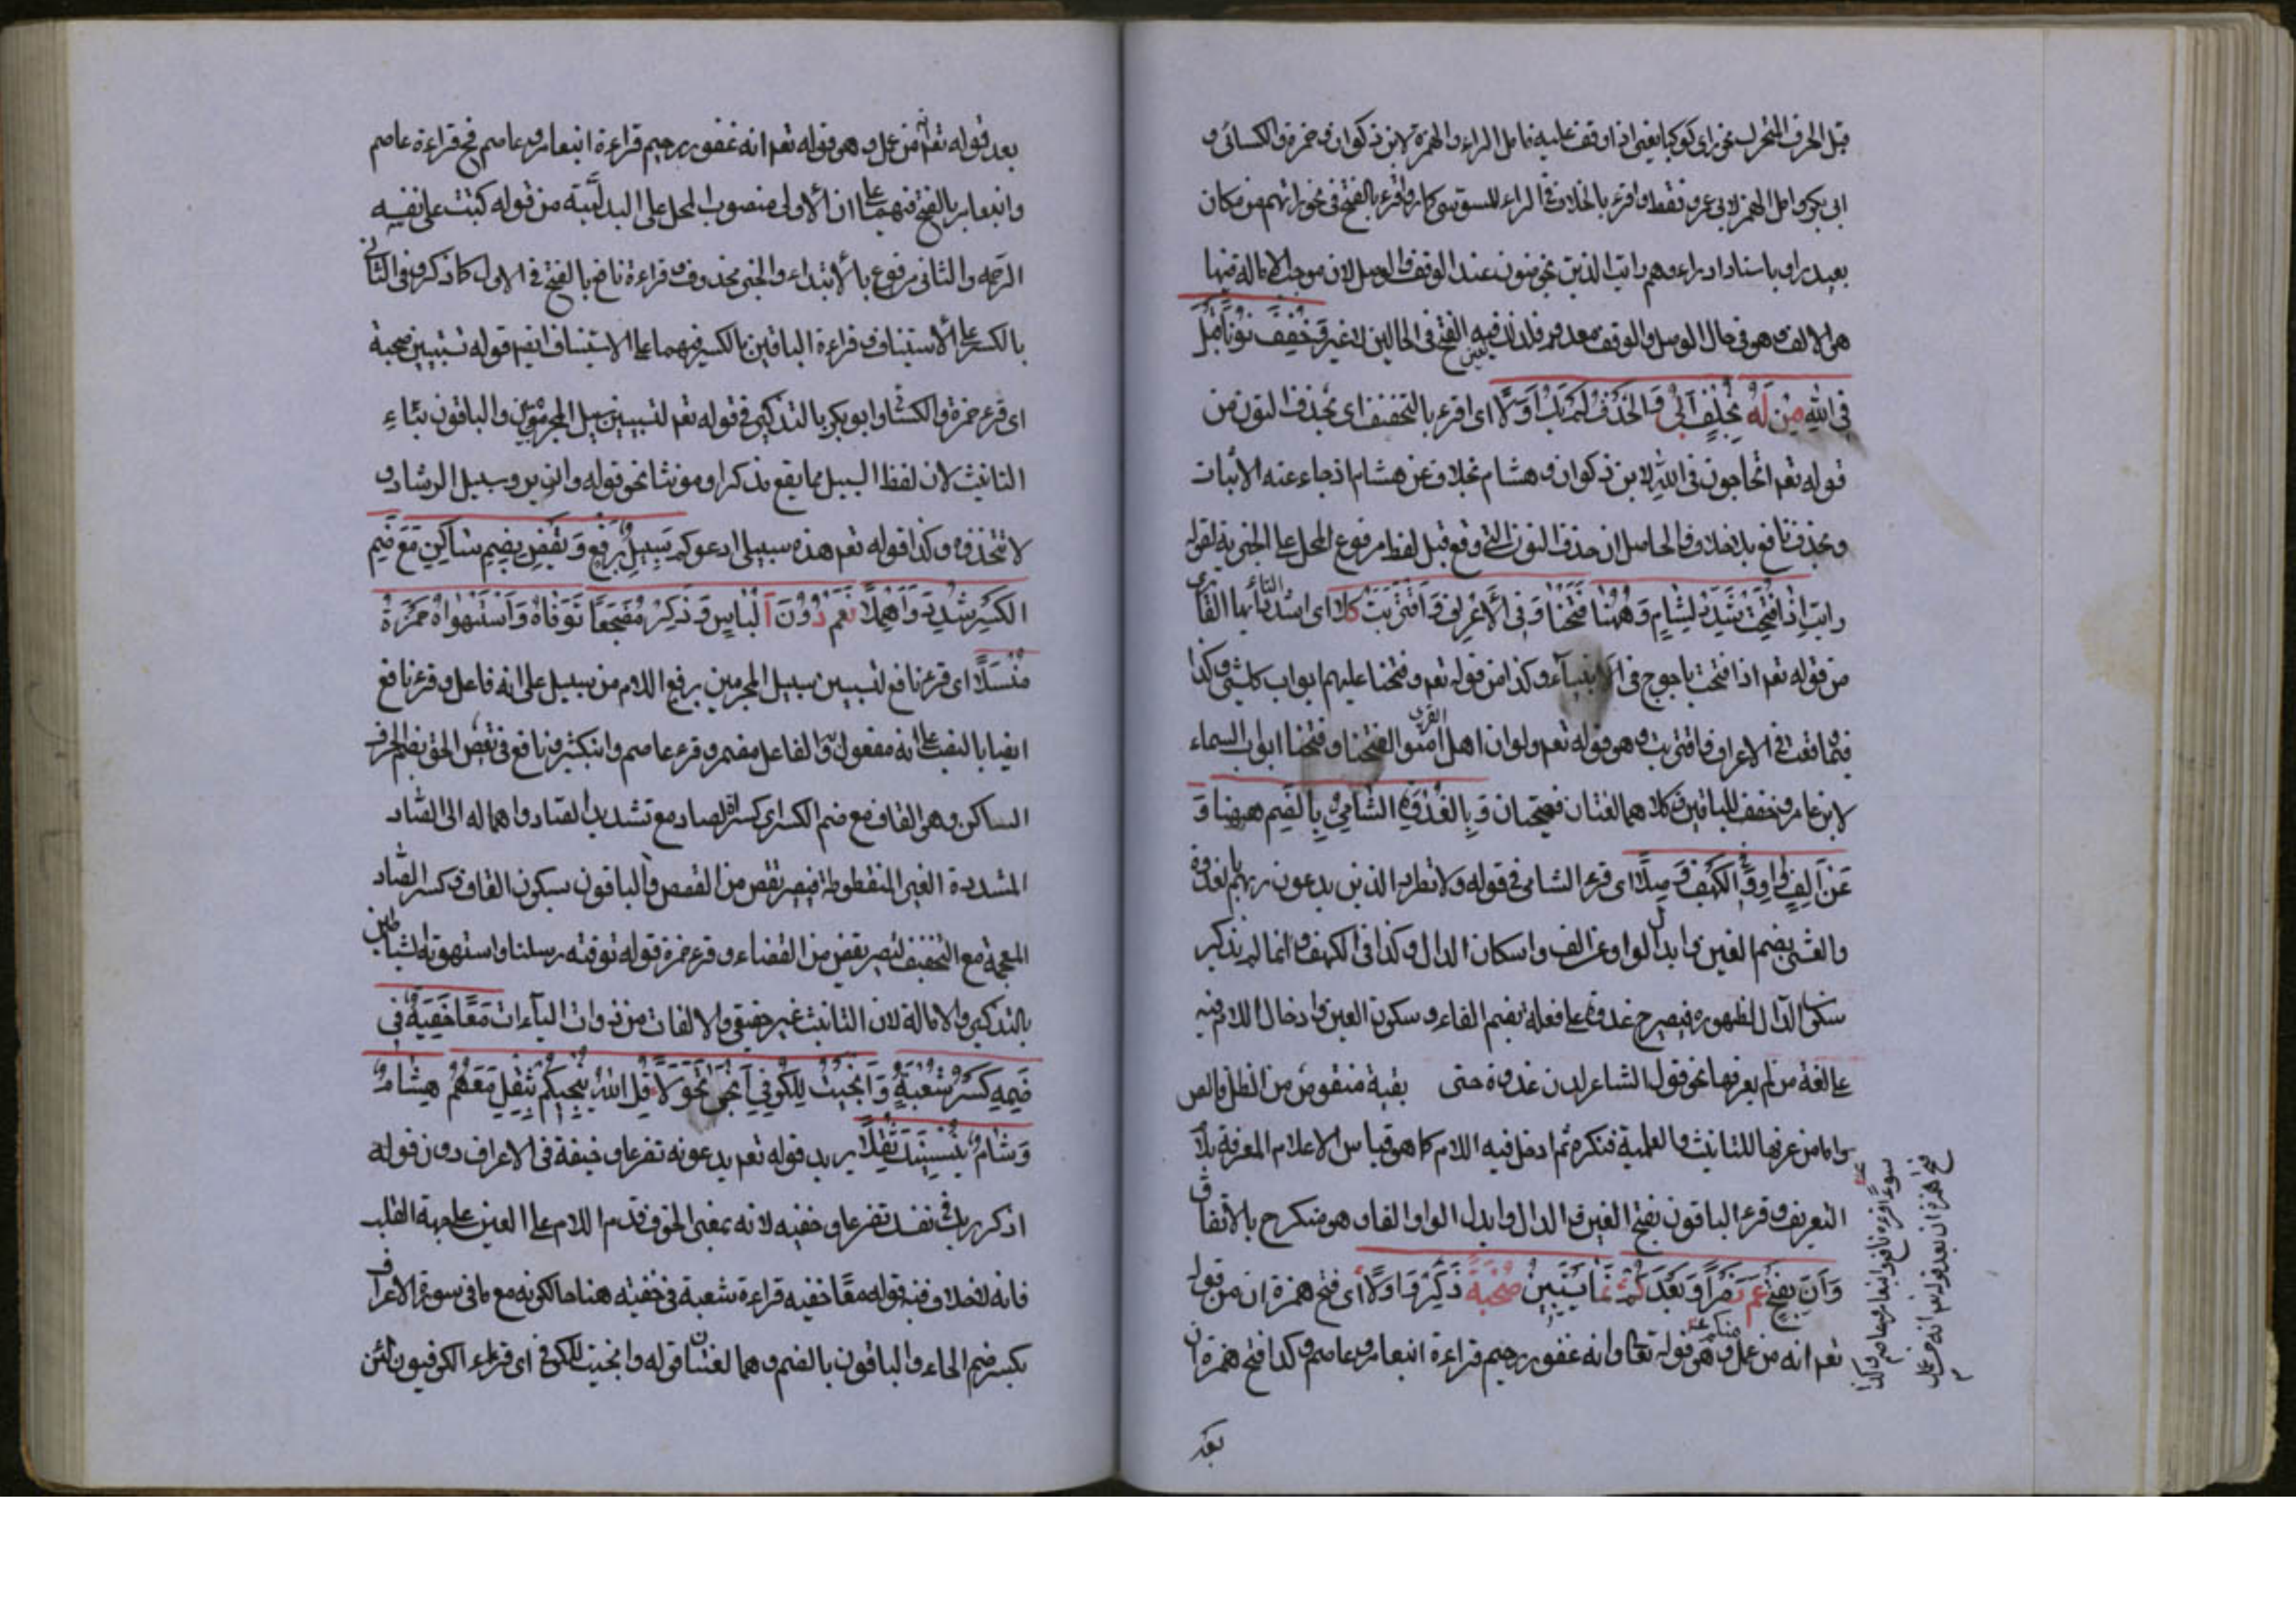 قبل الحرف المتحرك نحو رأى كوكبا يعنى اذا وقف عليه فامل الراء والهمزة لابن ذكوان وحمزة والكسائى و
ابى بكر وامل الهمز لابى عمرو فقط واقرء بالخلاف فى الراء للسوسى كما واقرء بالفتح فى نحو راتهم من مكان
بعيد وراوا باسنا واذا راوهم وايت الذين يخوضون عند الوقف والوصل لان موجب الامالة فيها
هو الالف وهو فى حال الوصل والوقف معدوم فلذلك فيه الفتح فى الحالين لا غير وَخَفِّفْ نُونًا قَبْلَ
فِى اللهِ مَنْ لَهُ بِخُلْفٍ اَتَى وَالحَذْفُ لَمْ يَكُ اَوَّلَا اى اقرء بالتخفيف اى بحذف النون من
قوله تعم اتحاجون فى الله لابن ذكوان وهشام بخلاف عن هشام اذ جاء عنه الاثبات
وبحذف نافع بلا خلاف فالحاصل ان حذف النون التى وقع قبل لفظ مرفوع المحل على الخبرية لقوله
رايت اِذَا فُتِحَتْ شَدِّدْ لِشَامٍ وَهٰهُنَا فَتَحْنَا وَفِى الْاَعْرَافِ وَاقْتَرَبَتْ كِلَا اى اشدد التاء يا ايها القارى
من قوله تعم اذا فتحت ياجوج فى الانبياء وكذا من قوله تعم وفتحنا عليهم ابواب كل شئ وكذا
فيما وقعت فى الاعراف واقتربت وهو قوله تعم ولو ان اهل القرى امنوا لفتحنا وفتحنا ابواب السماء
لابن عامر وخفف للباقين وكلاهما لغتان فصيحتان وَبِالْغُدْوَةِ الشَّامِىُّ بِالضَّمِ ههنا وَ
عَنْ اَلِفٍ وَاوٌ وَفِى الْكَهْفِ وَصَّلَا اى قرء الشامى فى قوله ولا تطرد الذين يدعون ربهم بالغدوة
والعشى بضم الغين وابدال الواو عن الف واسكان الدال وكذا فى الكهف وانما لم يذكر
سكون الدال لظهوره فيصير ح غدوة على فعلة بضم الفاء وسكون العين وادخال اللام فيه
على لغة من لم يعرفها نحو قول الشاعر لدن غدوة حتى بقية منقوص من الظل قالص
واما من عرفها للتانيث والعلمية فنكره ثم ادخل فيه اللام كما هو قياس الاعلام المعرفة بلا
التعريف وقرء الباقون بفتح الغين والدال وابدل الواو الفا وهو منكر ح بالاتفاق
وَاَنَّ بِفَتْحٍ عَمَّ نَصْرًا وَبَعْدُ كَمْ نَمَا يَسْتَبِينَ صُحْبَةٌ ذَكَّرُوا وِلَا اى فتح همزة ان من قوله
تعم انه من عمل منكم وهو قوله تعا وانه غفور رحيم قراءة ابنعامر وعاصم وكذا فتح همزة ان
بعد
سوءا قرءه نافع وابنعامر وعاصم وكذا
فتح همزة ان بعد قوله تعم انه من عمل
بعد قوله تعم انه من عمل وهو قوله تعم انه غفور رحيم قراءة ابنعامر وعاصم فح قراءة عاصم
وابنعامر بالفتح فيهما على ان الاولى منصوب المحل على البدلية من قوله كتب على نفسه
الرحمه والثانى مرفوع بالابتداء والخبر محذوف وقراءة نافع بالفتح فى الاول كما ذكر وفى الثانى
بالكسر على الاستيناف وقراءة الباقين بالكسر فيهما على الاستيناف ايضا قوله تستبين صحبة
اى قرء حمزة والكسائى وابو بكر بالتذكير فى قوله تعم لتستبين سبيل المجرمين والباقون بتاء
التانيث لان لفظ السبيل مما يقع مذكرا ومونثا نحو قوله وان يروا سبيل الرشاد و
لا تتخذوه وكذا قوله تعم هذه سبيلى ادعوكم سَبِيلَ بِرَفْعٍ وَيَقْضِ بِضَمِّ سَاكِنٍ مَعْ ضَمِّ
الكَسْرِ شَدِّدْ وَاَهْمِلَا نَعَمْ دُونَ اِلْبَاسٍ وَذَكَّرَ مُضْجِعًا تَوَفَّاهُ وَاسْتَهْوَاهُ حَمْزَةُ
مُنْسِلَا اى قرء نافع لتستبين سبيل المجرمين برفع اللام من سبيل على انه فاعل وقرء نافع
ايضا بالنصب على انه مفعول والفاعل مضمر وقرء عاصم وابنكثير ونافع فى يقص الحق بضم الحرف
الساكن وهو القاف مع ضم الكسر اى كسرة الصاد مع تشديد الصاد واهماله الى الصاد
المشددة الغير المنقطوطة فيصير يقص من القصص والباقون بسكون القاف وكسر الضاد
المعجمة مع التخفيف ليصير يقض من القضاء وقرء حمزة قوله توفته رسلنا واستهوته الشياطين
بالتذكير والامالة لان التانيث غير حقيقى والالفات من ذوات الياءات مَعًا خُفْيَةً فِى
ضَمِّهِ كَسْرُ شُعْبَةٍ وَاَنْجَيْتَ لِلْكُوفِىِّ اَنْجٰى تَحَوَّلَا قُلِ اللهُ يُنْجِيكُمْ يُثَقِّلُ مَعْهُمْ هِشَامٌ
وَشَامٍ يُنْسِيَنَّكَ ثَقَّلَا يريد قوله تعم يدعونه تضرعا وخيفة فى الاعراف دون قوله
اذكر ربك فى نفسك تضرعا وخفيه لانه بمعنى الخوف قدم اللام على العين على جهة القلب
فانه لا خلاف فيه قوله معًا خفيه قراءة شعبة فى خفيته هنا حالكونه مع ما فى سورة الاعراف
بكسر ضم الخاء والباقون بالضم وهما لغتان قوله وانجيت للكوفى اى قراء الكوفيون لئن